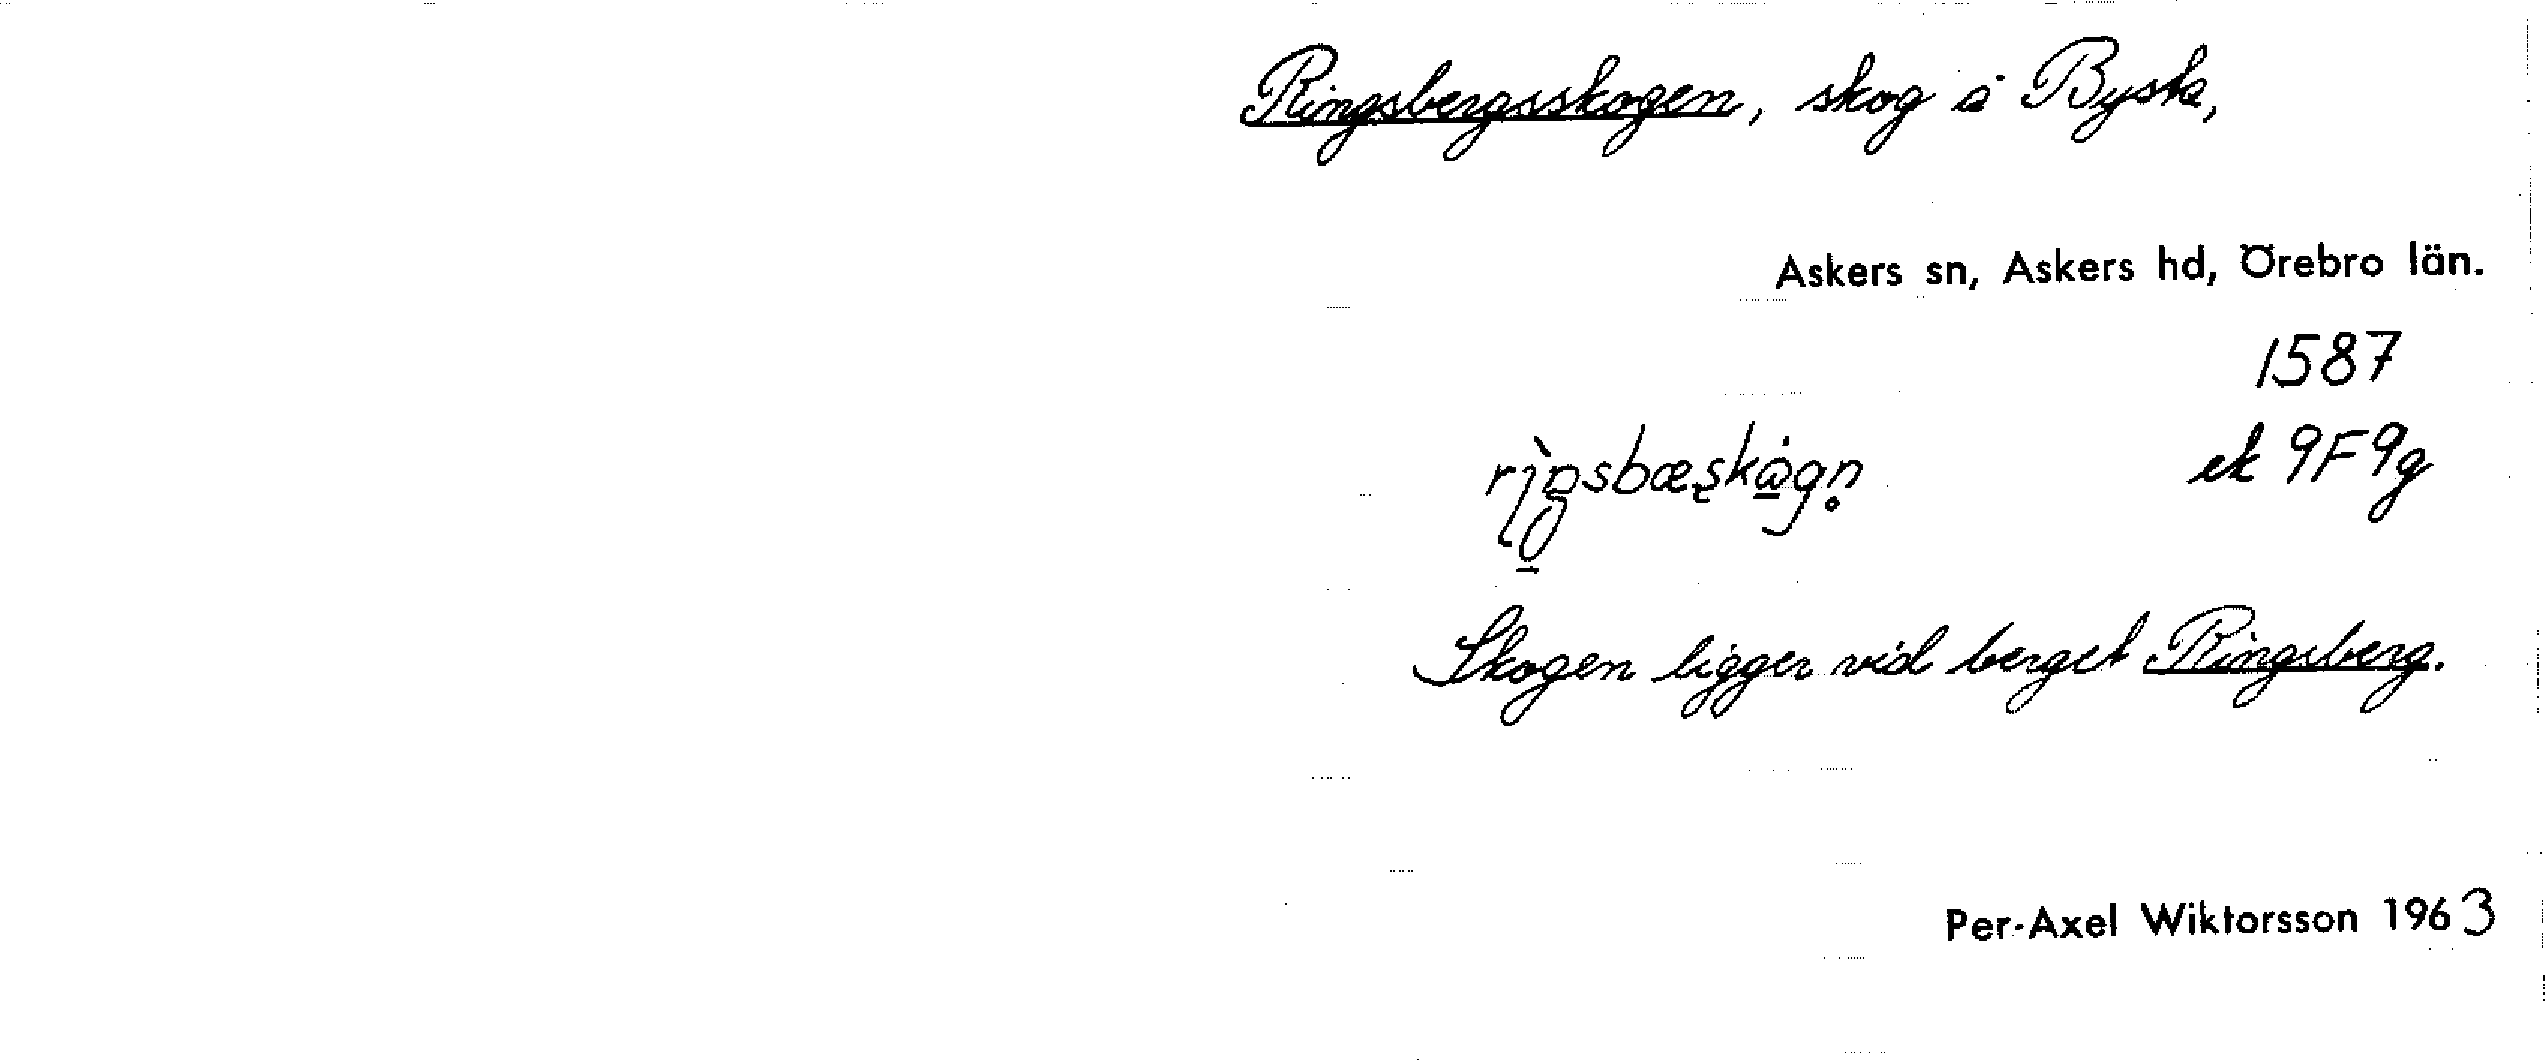 Ringsbergsskogen, skog å Bysta,
Askers sn, Askers hd, Örebro län.
1587
ek 9F9g
Skogen ligger vid berget Ringsberg.
Per-Axel Wiktorsson 1963